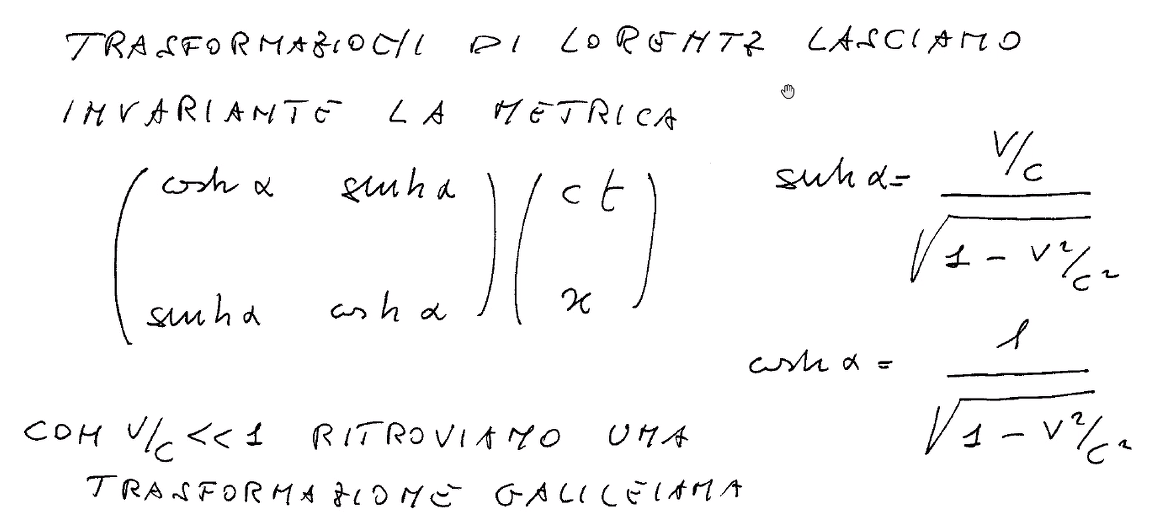 TRASFORMAZIONI DI LORENTZ LASCIANO
INVARIANTE LA METRICA
( cosh α sinh α ) ( ct )
( sinh α cosh α ) ( x )
sinh α = V/c / √(1 - V²/c²)
cosh α = 1 / √(1 - V²/c²)
CON V/c << 1 RITROVIAMO UNA
TRASFORMAZIONE GALILEIANA